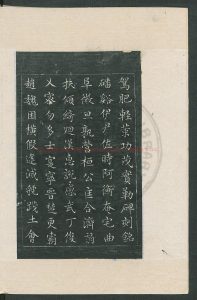 駕肥輕策功茂實勒碑刻銘
磻谿伊尹佐時阿衡奄宅曲
阜微旦孰營桓公匡合濟弱
扶傾綺迴漢惠說感武丁俊
乂密勿多士寔寧晉楚更霸
趙魏困橫假途滅虢踐土會